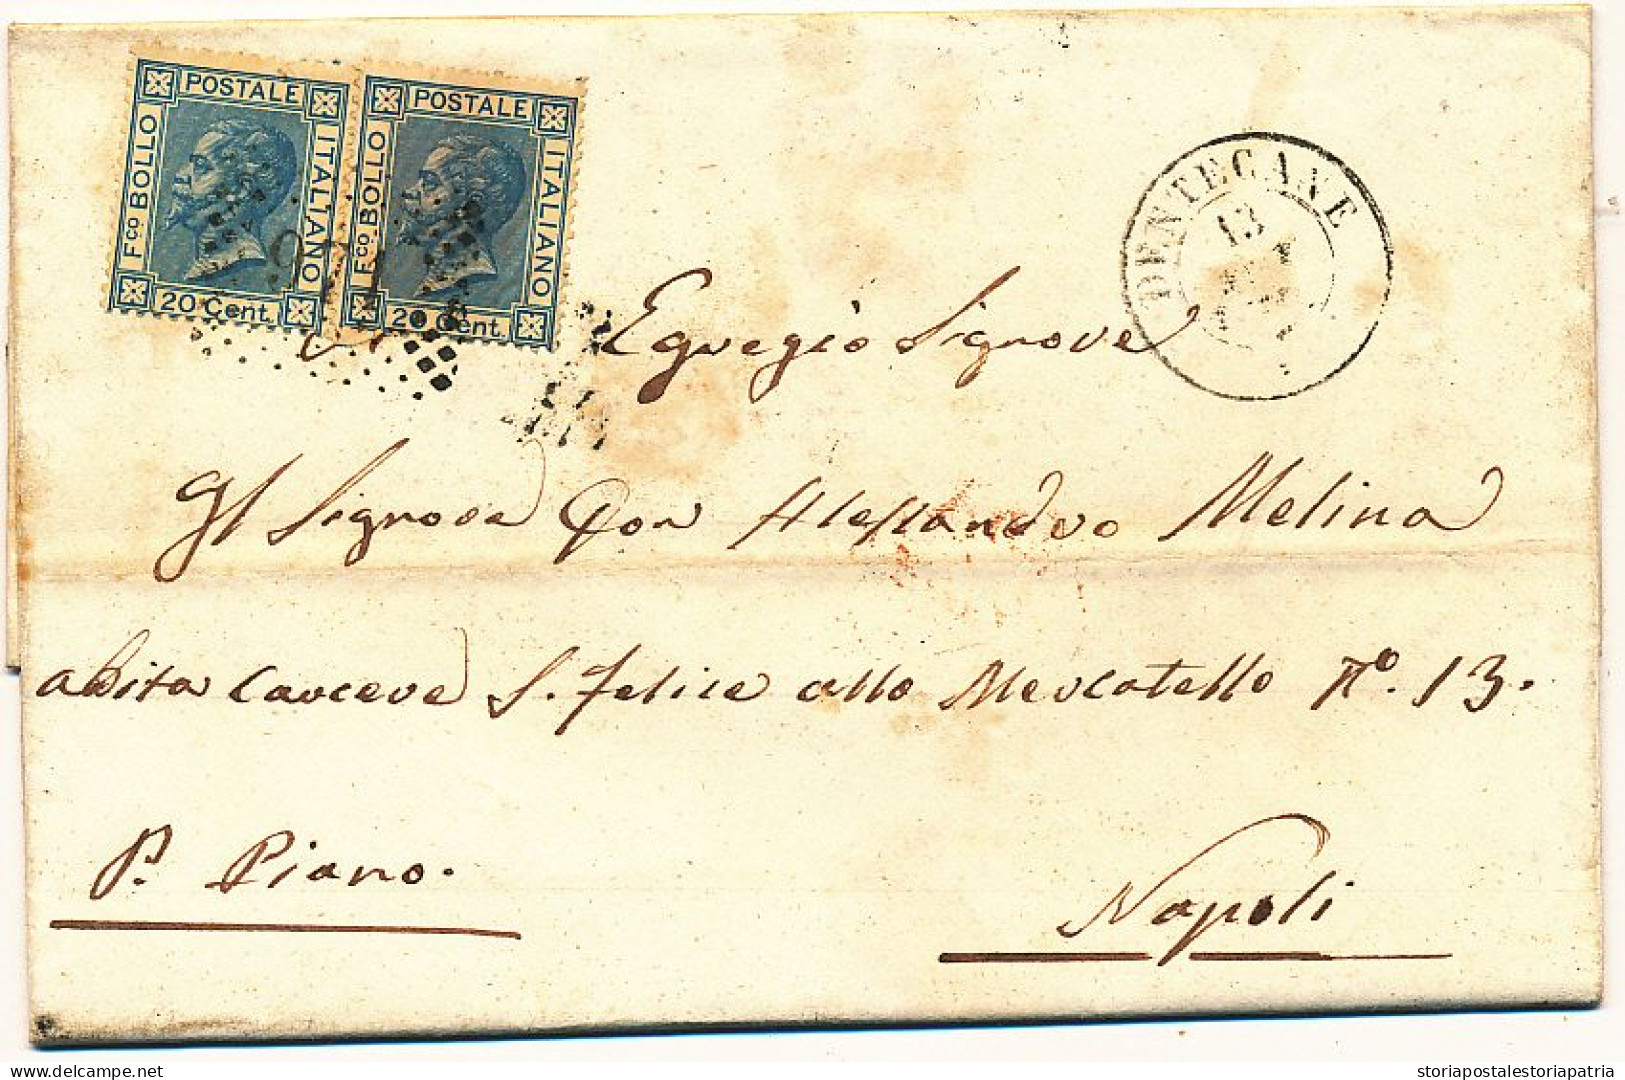 POSTALE
Fco BOLLO
ITALIANO
20 Cent.
POSTALE
Fco BOLLO
ITALIANO
20 Cent.
971
DENTECANE
13
Egregio Signore
Il Signore Don Alessandro Melina
abita Carcere S. Felice allo Mercatello No. 13.
P. Piano.
Napoli
storiapostalestoriapatria